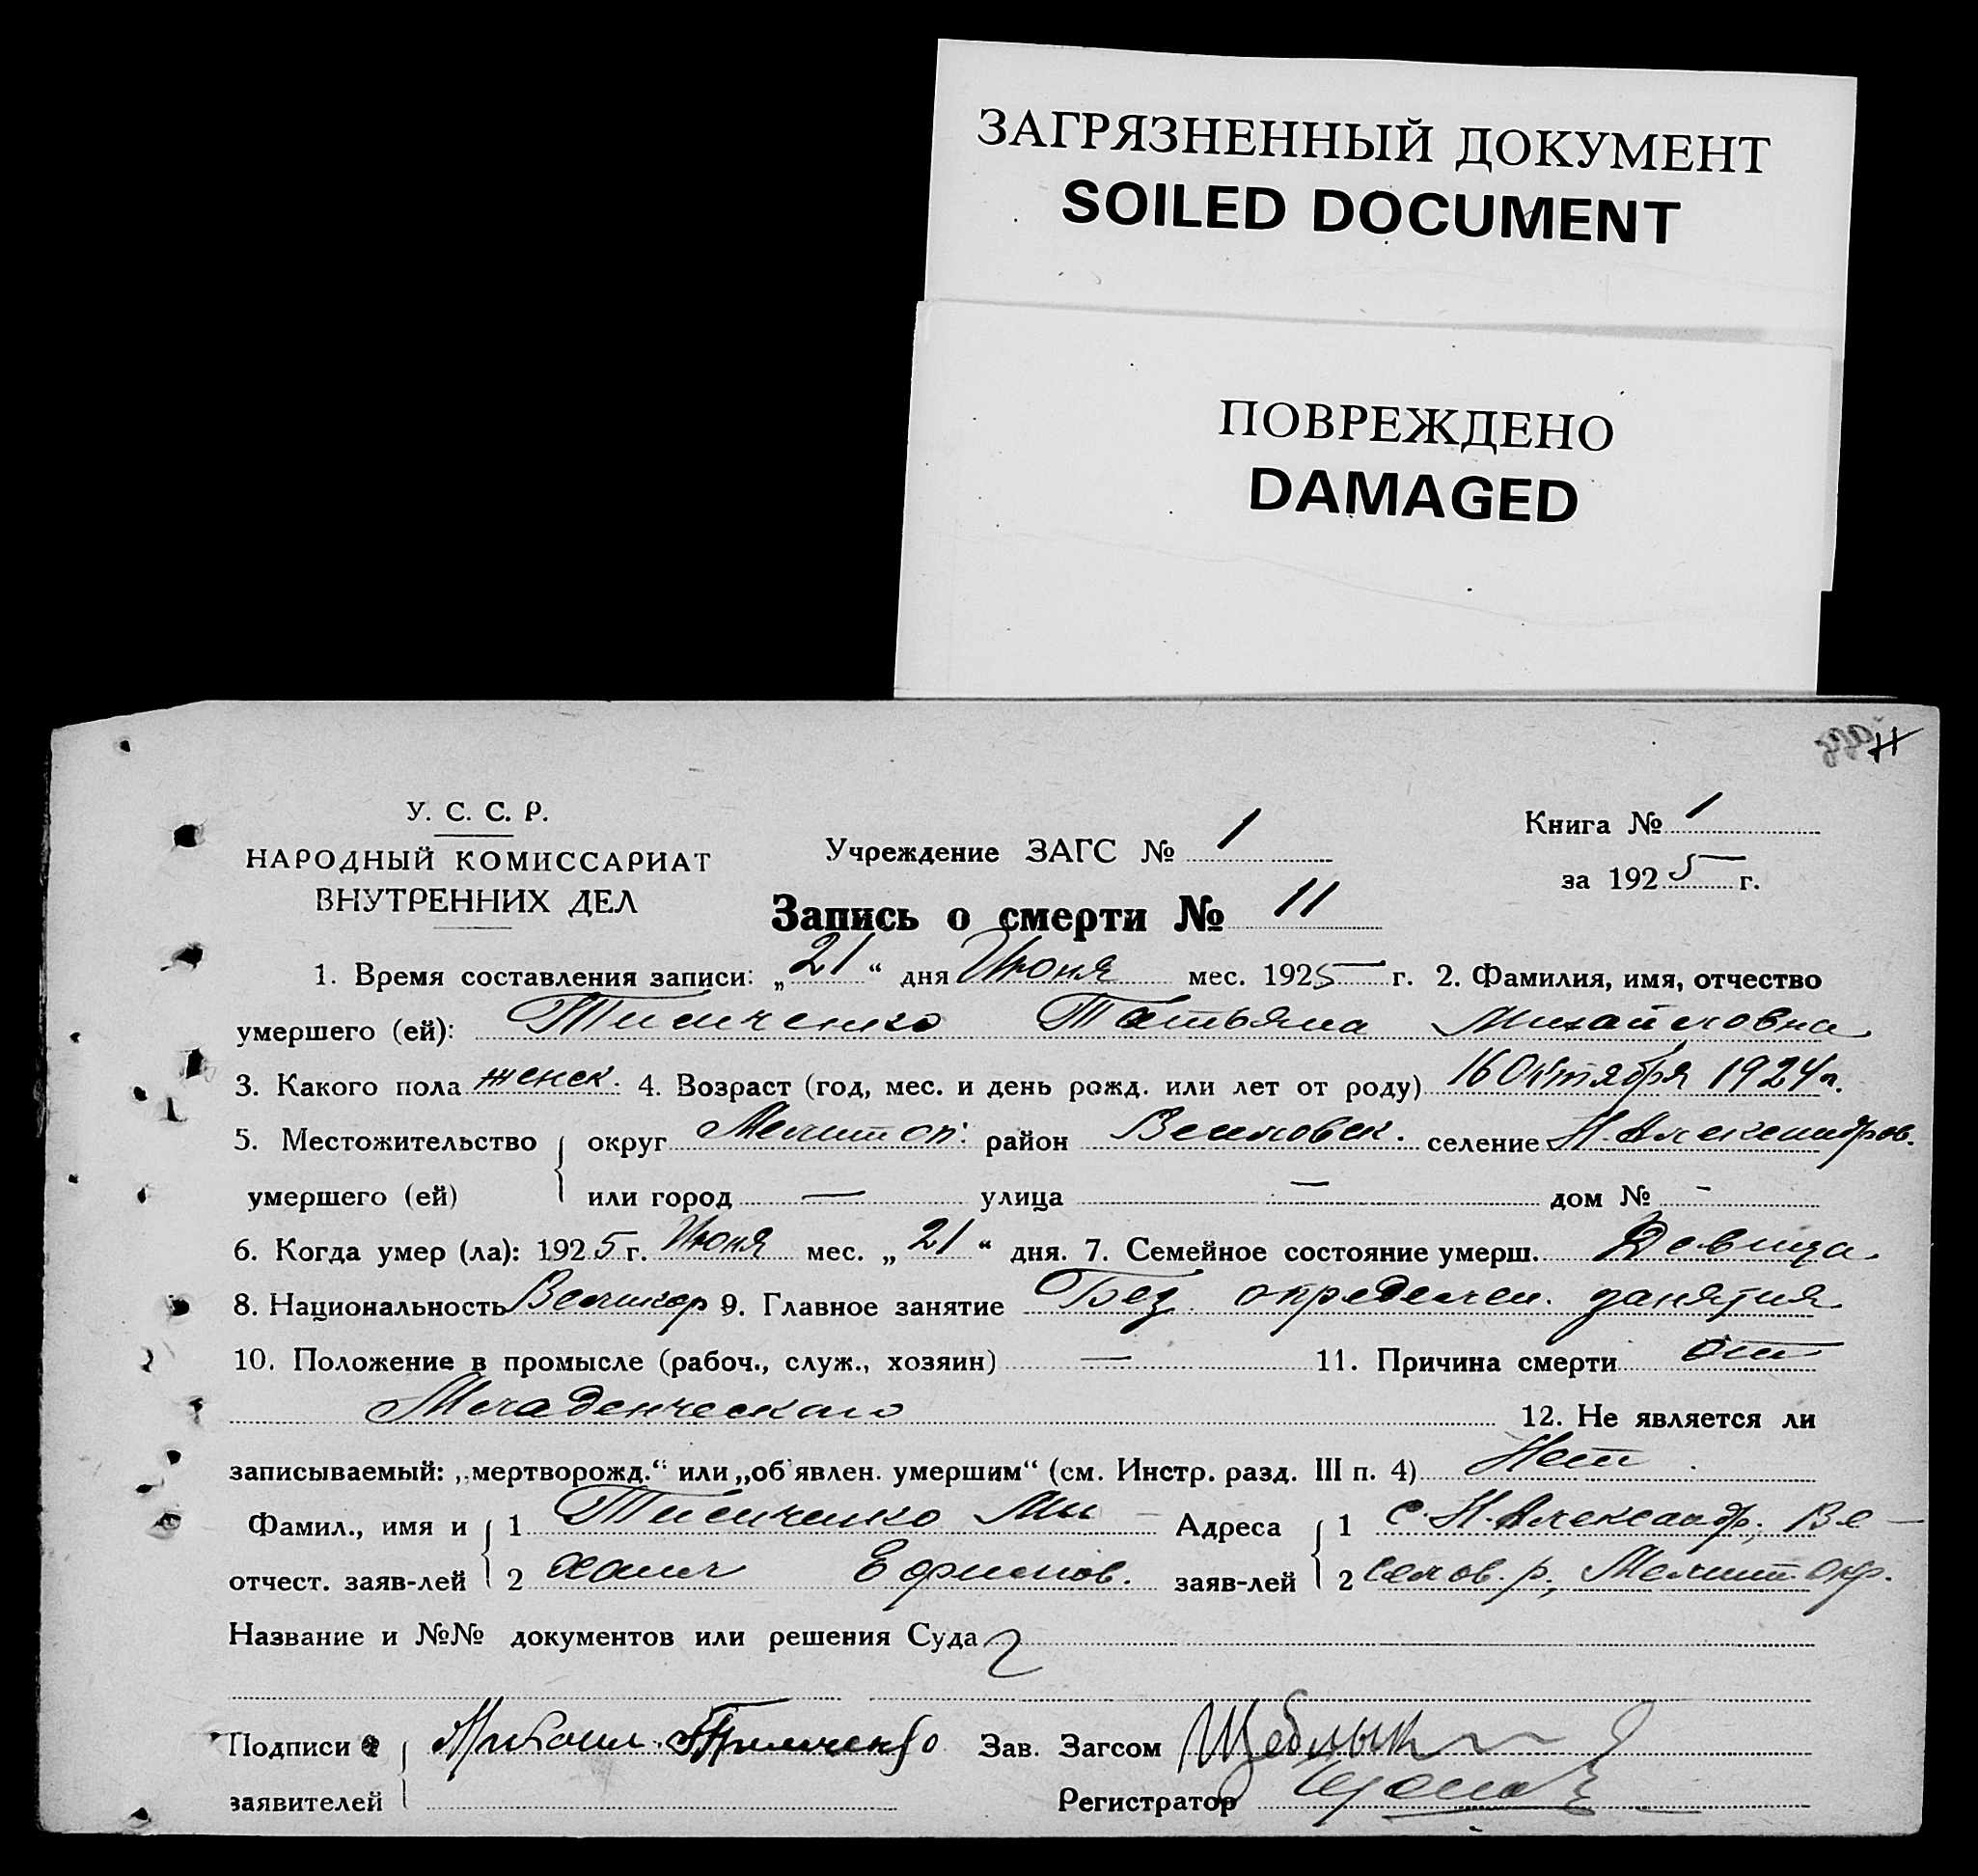 ЗАГРЯЗНЕННЫЙ ДОКУМЕНТ
SOILED DOCUMENT
ПОВРЕЖДЕНО
DAMAGED
11
У. С. С. Р.
НАРОДНЫЙ КОМИССАРИАТ
ВНУТРЕННИХ ДЕЛ
Учреждение ЗАГС № 1
Книга № 1
за 1925 г.
Запись о смерти № 11
1. Время составления записи: „21“ дня Июня мес. 1925 г. 2. Фамилия, имя, отчество
умершего (ей): Тимченко Татьяна Михайловна
3. Какого пола женск. 4. Возраст (год, мес. и день рожд. или лет от роду) 16 Октября 1924 г.
5. Местожительство округ Мелитоп. район Веселовск. селение Н. Александров.
умершего (ей) или город — улица — дом № -
6. Когда умер (ла): 1925 г. Июня мес. „21“ дня. 7. Семейное состояние умерш. Девица
8. Национальность Великор 9. Главное занятие Без определен. занятия
10. Положение в промысле (рабоч., служ., хозяин) — 11. Причина смерти от
Младенческаго 12. Не является ли
записываемый: „мертворожд.“ или „об'явлен. умершим“ (см. Инстр. разд. III п. 4) Нет
Фамил., имя и 1 Тимченко Ми- Адреса 1 с. Н. Александр, Ве-
отчест. заяв-лей 2 хаил Ефимов. заяв-лей 2 селов. р., Мелит. окр.
Название и №№ документов или решения Суда
Подписи Михаил Тимченко Зав. Загсом
заявителей Регистратор